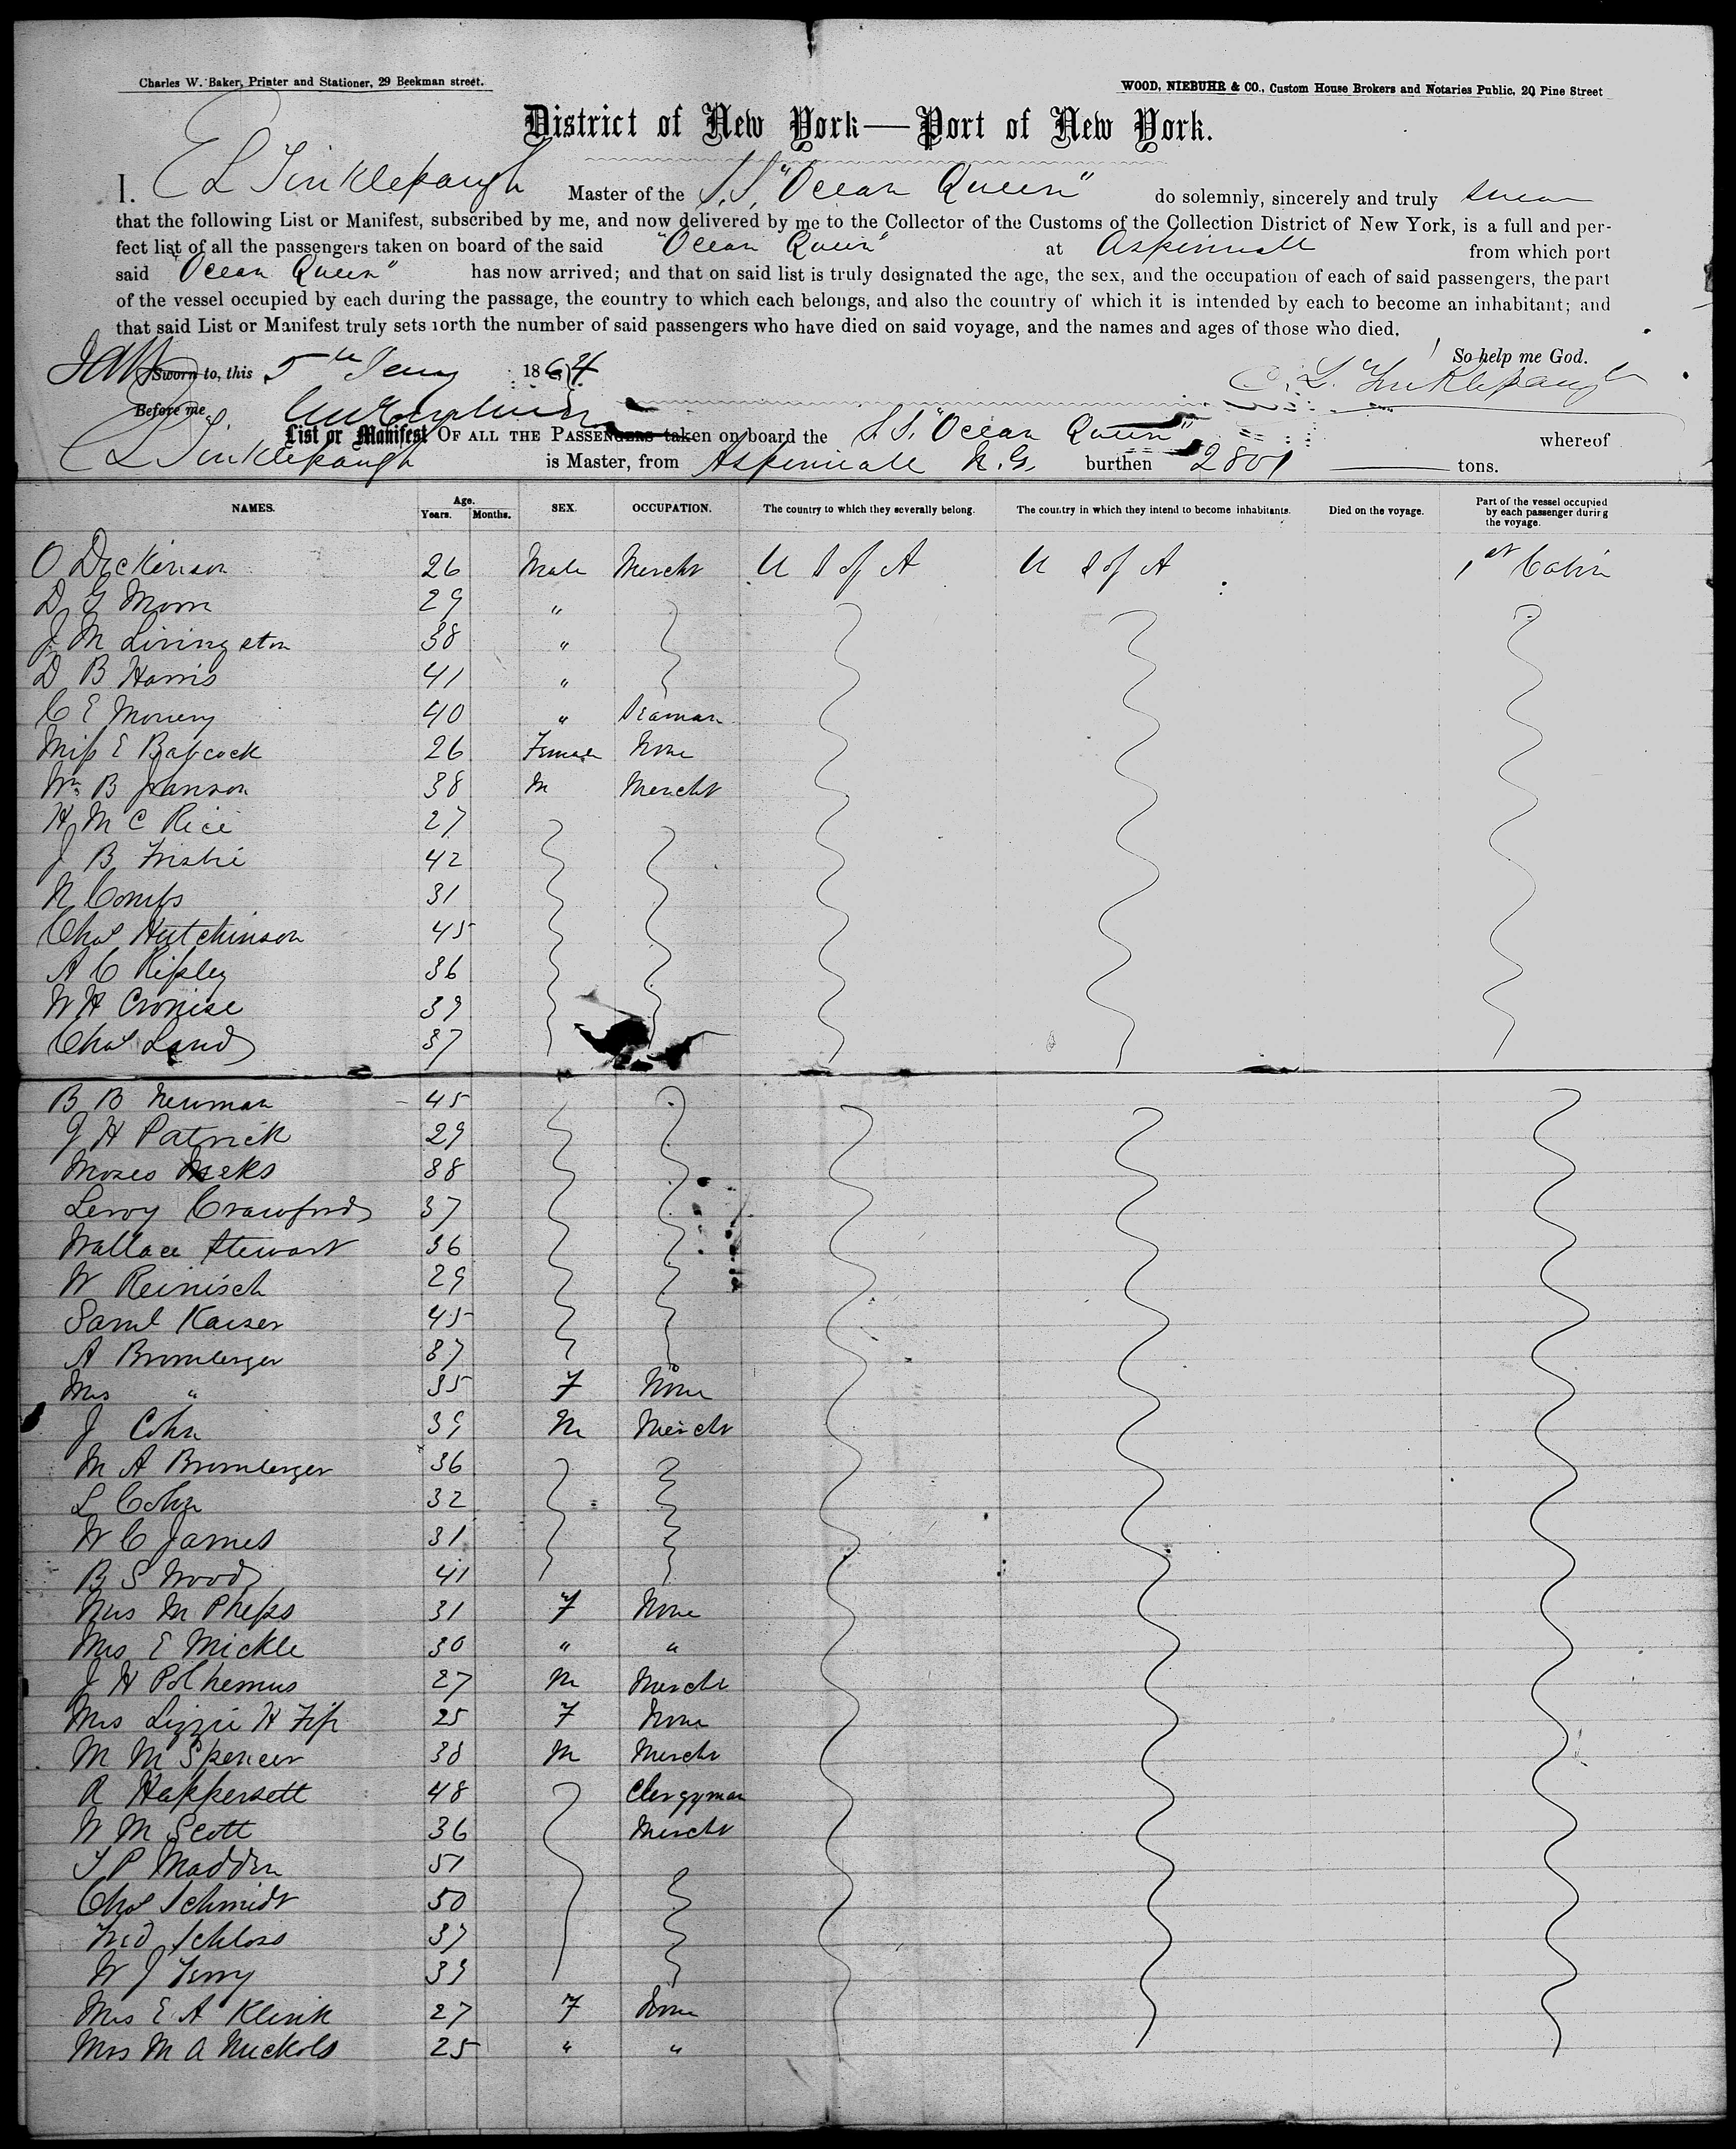 Charles W. Baker, Printer and Stationer, 29 Beekman street.
WOOD, NIEBUHR & CO., Custom House Brokers and Notaries Public, 20 Pine Street
District of New York—Port of New York.
I. E L Tinklepaugh Master of the S.S. "Ocean Queen" do solemnly, sincerely and truly swear
that the following List or Manifest, subscribed by me, and now delivered by me to the Collector of the Customs of the Collection District of New York, is a full and per-
fect list of all the passengers taken on board of the said "Ocean Queen" at Aspinwall from which port
said "Ocean Queen" has now arrived; and that on said list is truly designated the age, the sex, and the occupation of each of said passengers, the part
of the vessel occupied by each during the passage, the country to which each belongs, and also the country of which it is intended by each to become an inhabitant; and
that said List or Manifest truly sets forth the number of said passengers who have died on said voyage, and the names and ages of those who died.
So help me God.
Sworn to, this 5th Jany 1864
E. L. Tinklepaugh
Before me
List or Manifest OF ALL THE PASSENGERS taken on board the S.S. "Ocean Queen" whereof
E L Tinklepaugh is Master, from Aspinwall N.G. burthen 2801 tons.
NAMES. Age. Years. Months. SEX. OCCUPATION. The country to which they severally belong. The country in which they intend to become inhabitants. Died on the voyage. Part of the vessel occupied by each passenger during the voyage.
O Dickinson 26 Male Mercht U S of A U S of A 1st Cabin
D G Moore 29 "
J M Livingston 38 "
D B Harris 41 "
C E Mowery 40 " Seaman
Miss E Babcock 26 Female None
Wm B Johnson 38 M Mercht
H M C Rice 27
J B Frisbie 42
N Combs 31
Chas Hutchinson 45
A C Ripley 36
W H Cronise 39
Chas Land 37
B B Newman 45
J H Patrick 29
Moses Meeks 38
Leroy Crawford 37
Wallace Stewart 36
W Reinisch 29
Saml Kaiser 45
A Bromberger 37
Mrs " 35 F None
J Cohn 39 M Mercht
M A Bromberger 36
L Cohn 32
W C James 31
B S Wood 41
Mrs M Phelps 31 F None
Mrs E Mickle 30 " "
J H Polhemus 27 M Mercht
Mrs Lizzie H Fish 25 F None
M M Spencer 38 M Mercht
R Happersett 48 Clergyman
W M Scott 36 Mercht
T P Madden 51
Chas Schmidt 50
Fred Schloss 37
W J Terry 39
Mrs E A Klink 27 F None
Mrs M A Nuckols 25 " "